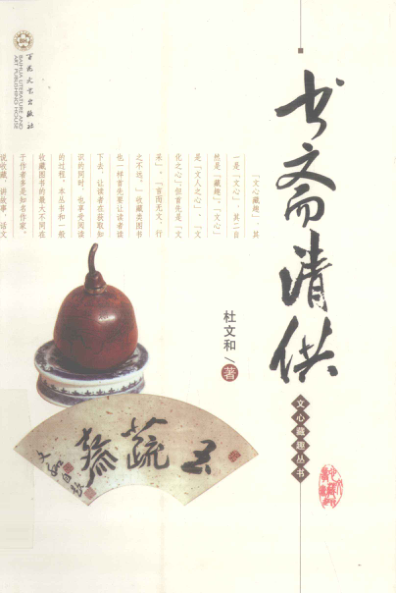 百花文艺出版社
BAIHUA LITERATURE AND
ART PUBLISHING HOUSE
书斋清供
杜文和
著
文心藏趣丛书
「文心藏趣」，其
一是「文心」，其二自
然是「藏趣」。「文心」
是「文人之心」、「文
化之心」，但首先是「文
采」，「言而无文，行
之不远。」收藏类图书
也一样首先要让读者读
下去，让读者在获取知
识的同时，也享受阅读
的过程。本丛书和一般
收藏图书的最大不同在
于作者多是知名作家。
说收藏，讲故事，话文